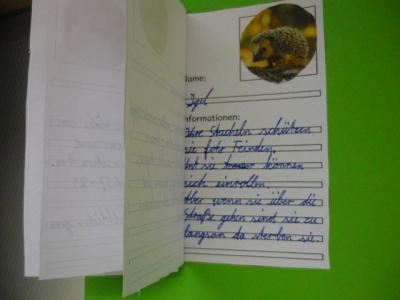 Name:
Igel
Informationen:
Ihre Stacheln schützen
sie fohr Feinden.
sie können
sich einrollen.
Aber wenn sie über die
Straße gehen sind sie zu
langsam da sterben sie.